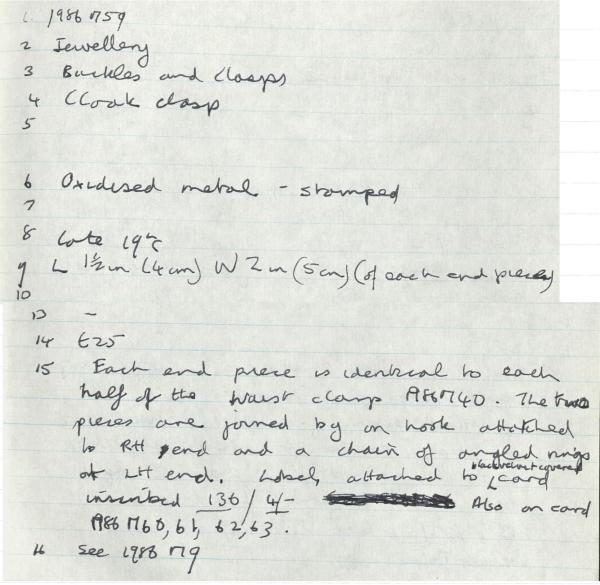 1. 1986 759
2 Jewellery
3 Buckles and clasps
4 Cloak clasp
5
6 Oxidised metal - stamped
7
8 Late 19thC
9 L 1½ in (4cm) W 2 in (5cm) (of each end piece)
10
13 -
14 £25
15 Each end piece is identical to each
half of the waist clamp 1986 740. The two
pieces are joined by an hook attatched
to RH end and a chain of angled rings
at LH end. Label, attached to black velvet covered card
inscribed 136 / 4/- Also on card
1986 760, 61, 62, 63.
16 See 1986 719